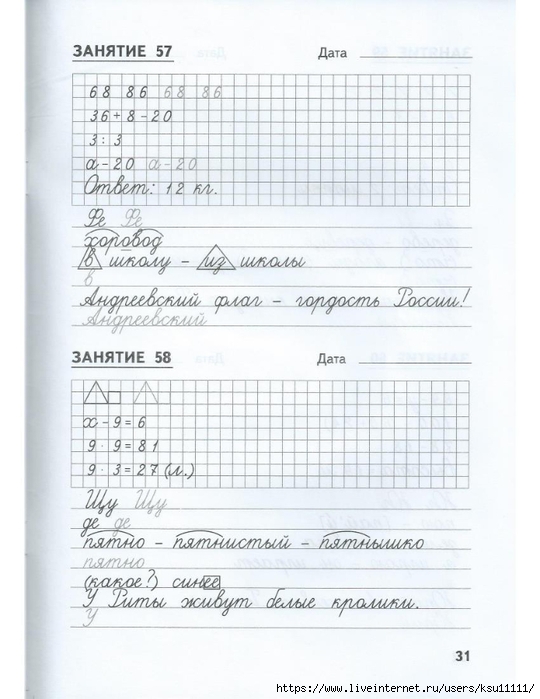 ЗАНЯТИЕ 57 Дата
68 86 68 86
36 + 8 - 20
3 : 3
а - 20 а - 20
Ответ: 12 кг.
Фе Фе
хоровод
в школу – из школы
в
Андреевский флаг – гордость России!
Андреевский
ЗАНЯТИЕ 58 Дата
х - 9 = 6
9 · 9 = 81
9 · 3 = 27 (м.)
Щу Щу
де де
пятно – пятнистый – пятнышко
пятно
(какое?) синее
У Риты живут белые кролики.
У
31
https://www.liveinternet.ru/users/ksu11111/